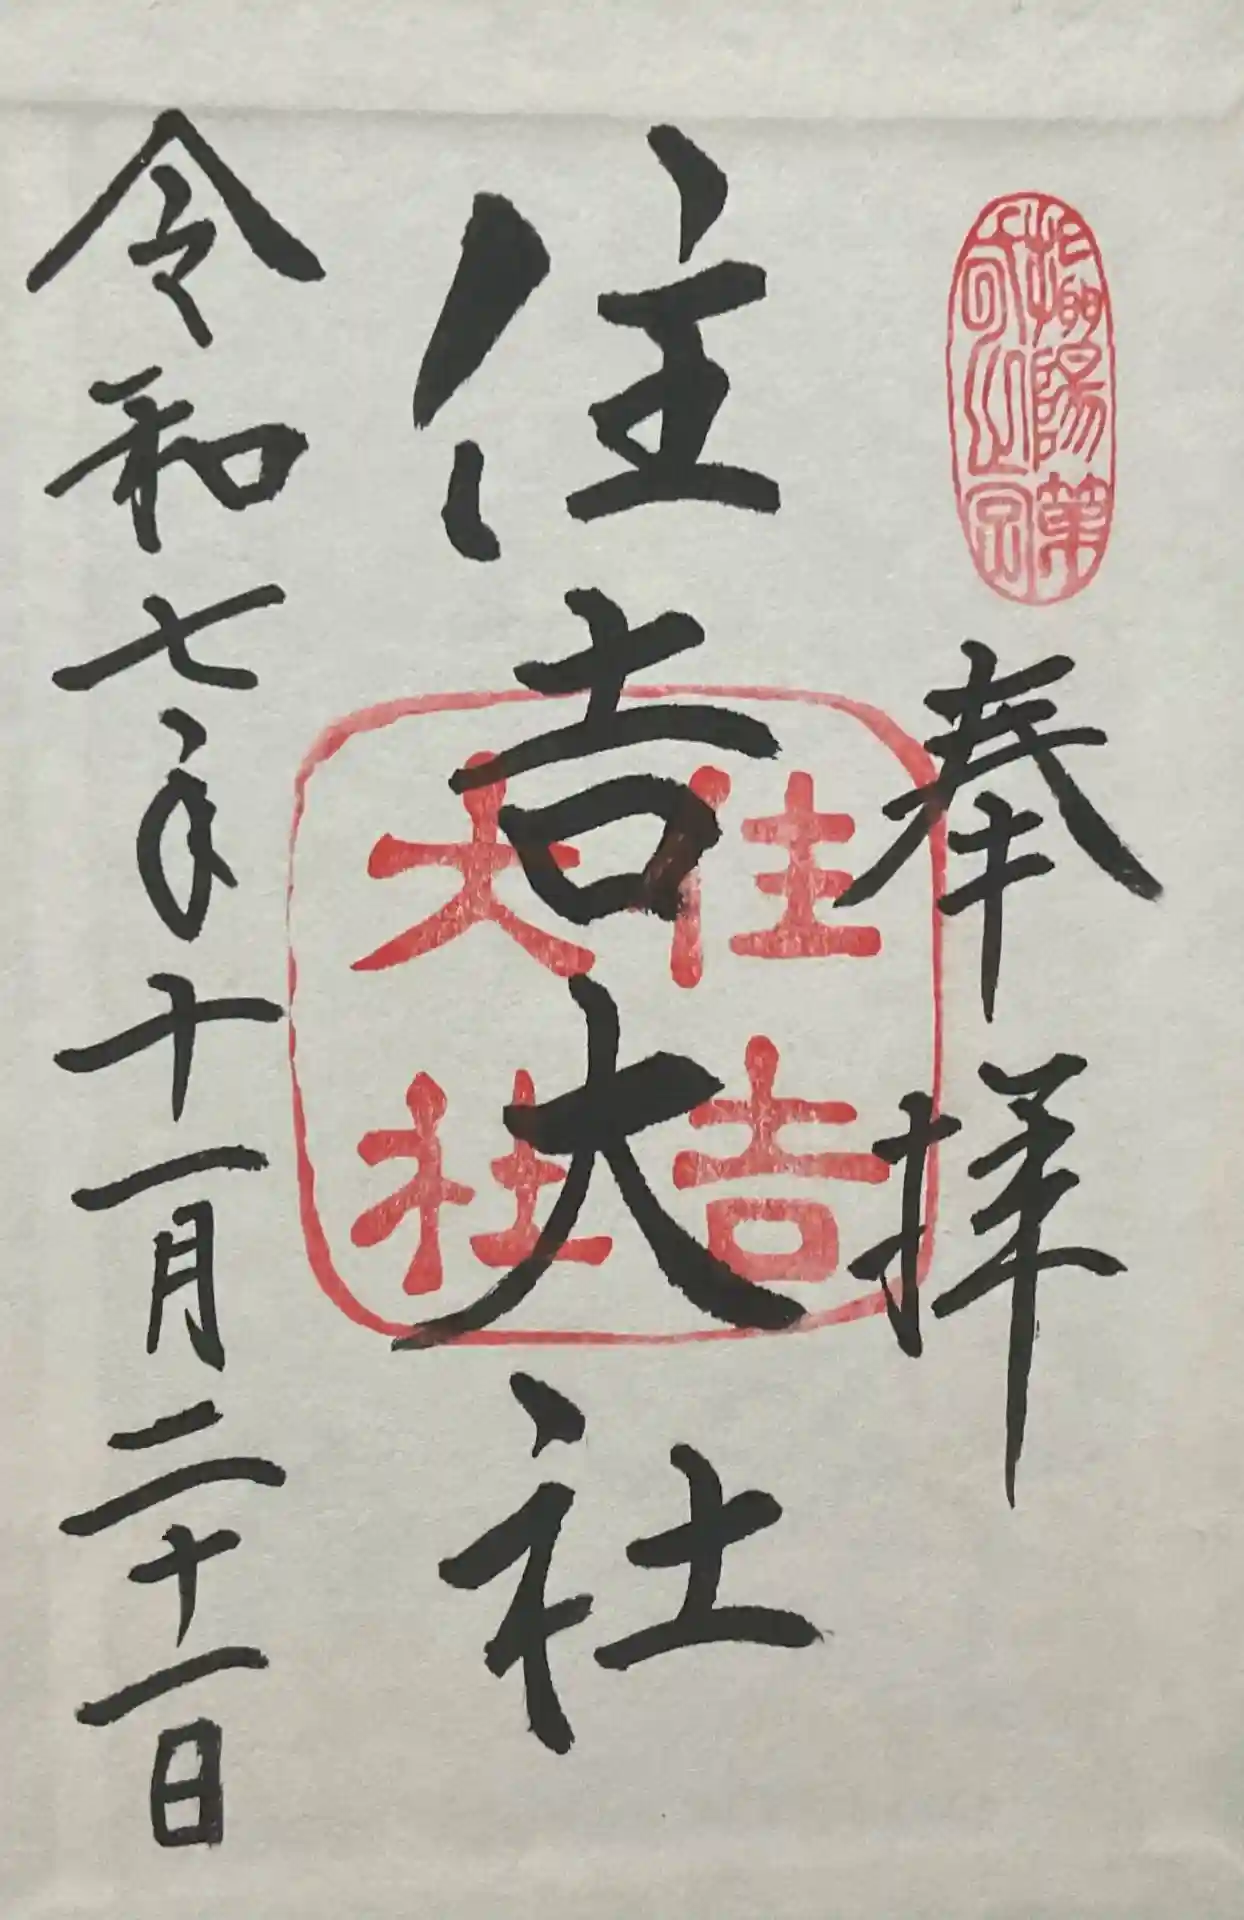 摂陽第一宮
奉拝
住吉大社
住吉
大社
令和七年十一月二十一日